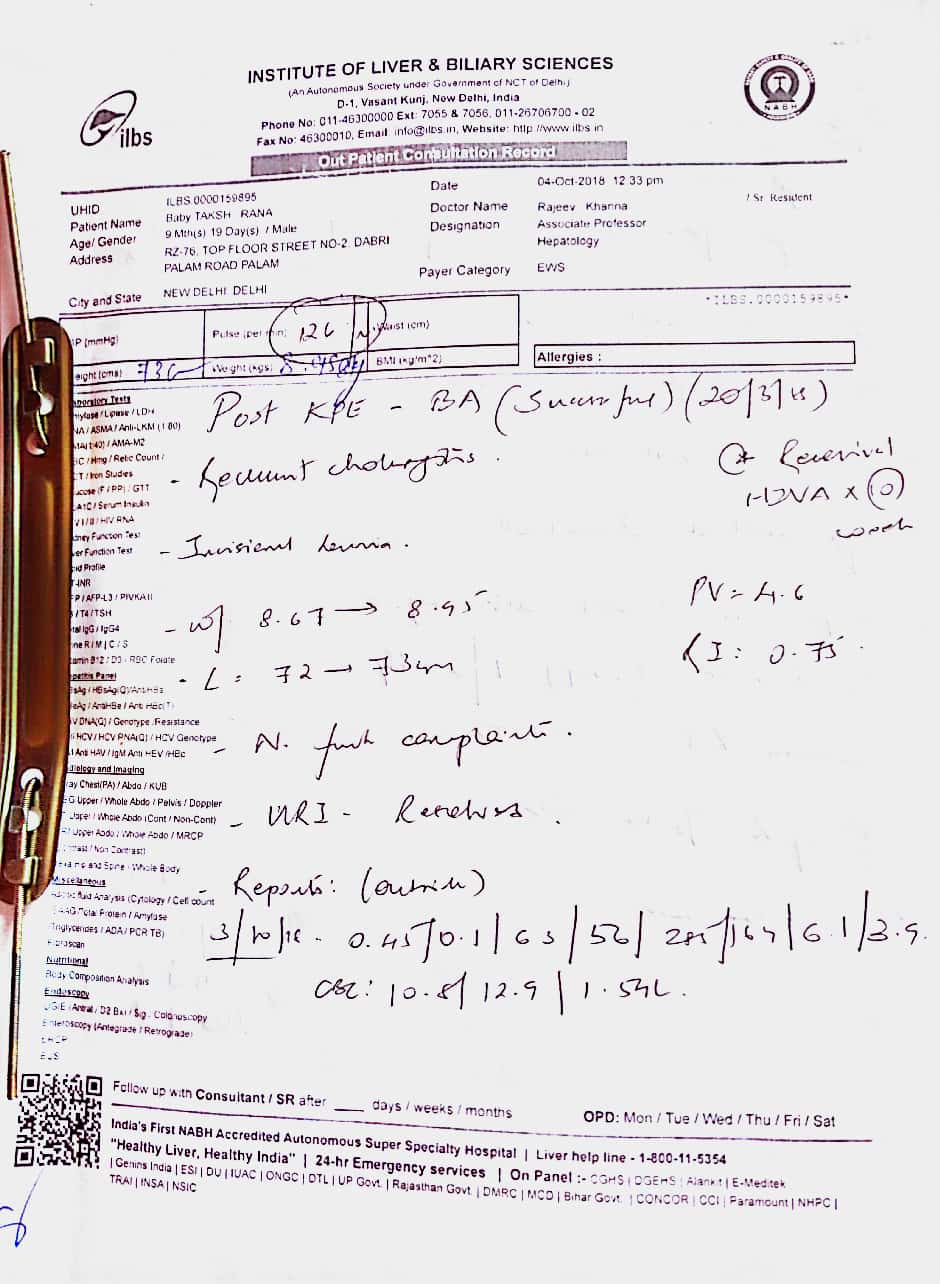 INSTITUTE OF LIVER & BILIARY SCIENCES
(An Autonomous Society under Government of NCT of Delhi)
D-1, Vasant Kunj, New Delhi, India
Phone No: 011-46300000 Ext: 7055 & 7056, 011-26706700 - 02
Fax No: 46300010, Email: info@ilbs.in, Website: http://www.ilbs.in
ilbs
NABH
Out Patient Consultation Record
UHID ILBS.0000159895
Patient Name Baby TAKSH RANA
Age/ Gender 9 Mth(s) 19 Day(s) / Male
Address RZ-76, TOP FLOOR STREET NO-2, DABRI
PALAM ROAD PALAM
City and State NEW DELHI DELHI
Date 04-Oct-2018 12:33 pm
Doctor Name Rajeev Khanna / Sr. Resident
Designation Associate Professor
Hepatology
Payer Category EWS
*ILBS.0000159895*
P (mmHg) Pulse (per min) 126 Waist (cm)
eight (cms) 73 Weight (kgs) 8.95 BMI (kg/m^2)
Allergies :
Post KPE - BA (Successful) (20/3/18)
- Recurrent cholangitis.
Received
HDVA x 10
week
- Incisional hernia.
- wt 8.67 → 8.95
PV = 4.6
- L = 72 → 73cm
RI: 0.75.
- N. fresh complaints.
- URI -
- Reports: (outside)
3/10/18 - 0.45/0.1/63/56/285/164/6.1/3.9.
CBC: 10.8/12.9/1.54L.
aboratory Tests
mylase / Lipase / LDH
NA / ASMA / Anti-LKM (1:80)
MA(1:40) / AMA-M2
BC / Hmg / Retic Count /
CT / Iron Studies
ucose (F / PP) / GTT
bA1C / Serum Insulin
V I / II / HIV RNA
dney Function Test
ver Function Test
pid Profile
T-INR
FP / AFP-L3 / PIVKAII
3 / T4 / TSH
otal IgG / IgG4
ine R / M | C / S
tamin B12 / D3 - RBC Folate
epatitis Panel
sAg / HBsAg(Q)/AntiHBs
eAg / AntiHBe / Anti HBc(T)
V DNA(Q) / Genotype /Resistance
HCV / HCV RNA(Q) / HCV Genotype
Anti HAV / IgM Anti HEV /HBc
diology and Imaging
ay Chest(PA) / Abdo / KUB
G Upper / Whole Abdo / Pelvis / Doppler
Upper / Whole Abdo (Cont / Non-Cont)
Upper Abdo / Whole Abdo / MRCP
ntrast / Non Contrast)
and Spine / Whole Body
Miscellaneous
fluid Analysis (Cytology / Cell count
SAAG/Total Protein / Amylase
Triglycerides / ADA / PCR TB)
Fibroscan
Nutritional
Body Composition Analysis
Endoscopy
UGIE (Antral / D2 Bx) / Sig / Colonoscopy
Enteroscopy (Antegrade / Retrograde)
ERCP
EUS
Follow up with Consultant / SR after ____ days / weeks / months
OPD: Mon / Tue / Wed / Thu / Fri / Sat
India's First NABH Accredited Autonomous Super Specialty Hospital | Liver help line - 1-800-11-5354
"Healthy Liver, Healthy India" | 24-hr Emergency services | On Panel :- CGHS | DGEHS | Alankit | E-Meditek
| Genins India | ESI | DU | IUAC | ONGC | DTL | UP Govt. | Rajasthan Govt. | DMRC | MCD | Bihar Govt. | CONCOR | CCI | Paramount | NHPC |
TRAI | INSA | NSIC